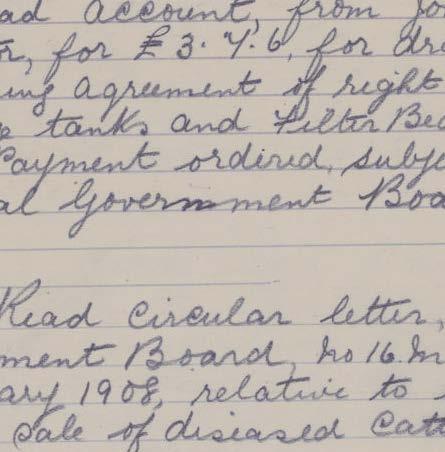 ad account, from Jo
r, for £3.7.6, for dra
ing agreement of right
e tanks and Filter Bed
Payment ordered, subje
al Government Boa
Read circular letter,
ment Board, No 16. M
ary 1908, relative to
Sale of diseased Catt